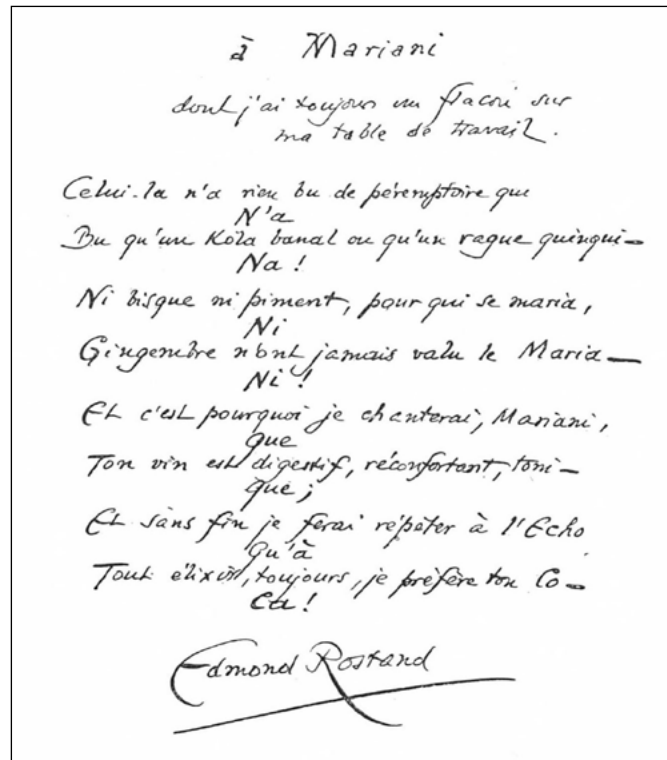 à Mariani
dont j'ai toujours un flacon sur
ma table de travail.
Celui-là n'a rien bu de péremptoire que
N'a
Bu qu'un Kola banal ou qu'un vague quinqui-
Na !
Ni bisque ni piment, pour qui se maria,
Ni
Gingembre n'ont jamais valu le Maria-
Ni !
Et c'est pourquoi je chanterai, Mariani,
que
Ton vin est digestif, réconfortant, toni-
que ;
Et sans fin je ferai répéter à l'Echo
Qu'à
Tout élixir, toujours, je préfère ton Co-
Ca !
Edmond Rostand